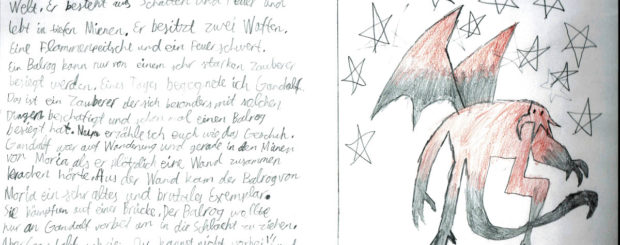 Welt. Er besteht aus Schatten und Feuer und
lebt in tiefen Mienen. Er besitzt zwei Waffen.
Eine Flammenpeitsche und ein Feuerschwert.
Ein Balrog kann nur von einem sehr starken Zauberer
besiegt werden. Eines Tages begegnete ich Gandalf.
Das ist ein Zauberer der sich besonders mit solchen
Dingen beschäftigt und schon mal einen Balrog
besiegt hat. Nun erzähle ich euch wie das Geschah.
Gandalf war auf Wanderung und gerade in den Minen
von Moria als er plötzlich eine Wand zusammen
krachen hörte. Aus der Wand kam der Balrog von
Moria ein sehr altes und brutales Exemplar.
Sie kämpften auf einer Brücke. Der Balrog wollte
nur an Gandalf vorbei um in die Schlacht zu ziehen.
Aber Gandalf schrie: Du kannst nicht vorbei!" und